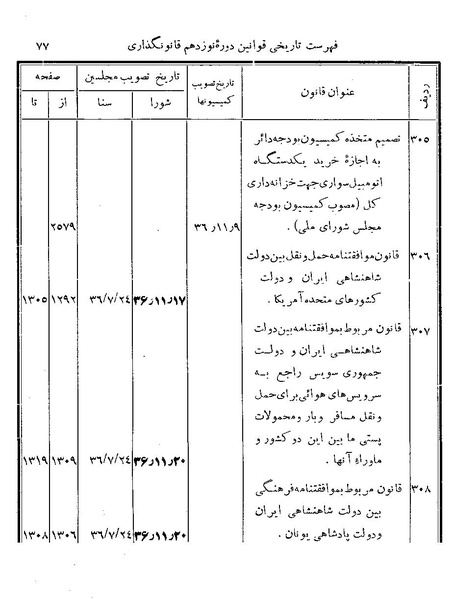 فهرست تاریخی قوانین دورهٔ نوزدهم قانونگذاری ۷۷
ردیف عنوان قانون تاریخ تصویب کمیسیونها تاریخ تصویب مجلسین صفحه
شورا سنا از تا
۳۰۵ تصمیم متخذه کمیسیون بودجه دائر
به اجازهٔ خرید یکدستگاه
اتومبیل سواری جهت خزانه‌داری
کل (مصوب کمیسیون بودجه
مجلس شورای ملی). ۳۶٫۱۱٫۹ ۲۵۷۹
۳۰۶ قانون موافقتنامه حمل و نقل بین دولت
شاهنشاهی ایران و دولت
کشورهای متحده آمریکا. ۳۶٫۱۱٫۱۷ ۳۶/۷/۲۴ ۱۲۹۲ ۱۳۰۵
۳۰۷ قانون مربوط بموافقتنامه بین دولت
شاهنشاهی ایران و دولت
جمهوری سویس راجع به
سرویس‌های هوائی برای حمل
و نقل مسافر و بار و محمولات
پستی ما بین این دو کشور و
ماوراء آنها. ۳۶٫۱۱٫۲۰ ۳۶/۷/۲۴ ۱۳۰۹ ۱۳۱۹
۳۰۸ قانون مربوط بموافقتنامه فرهنگی
بین دولت شاهنشاهی ایران
و دولت پادشاهی یونان. ۳۶٫۱۱٫۲۰ ۳۶/۷/۲۴ ۱۳۰۶ ۱۳۰۸